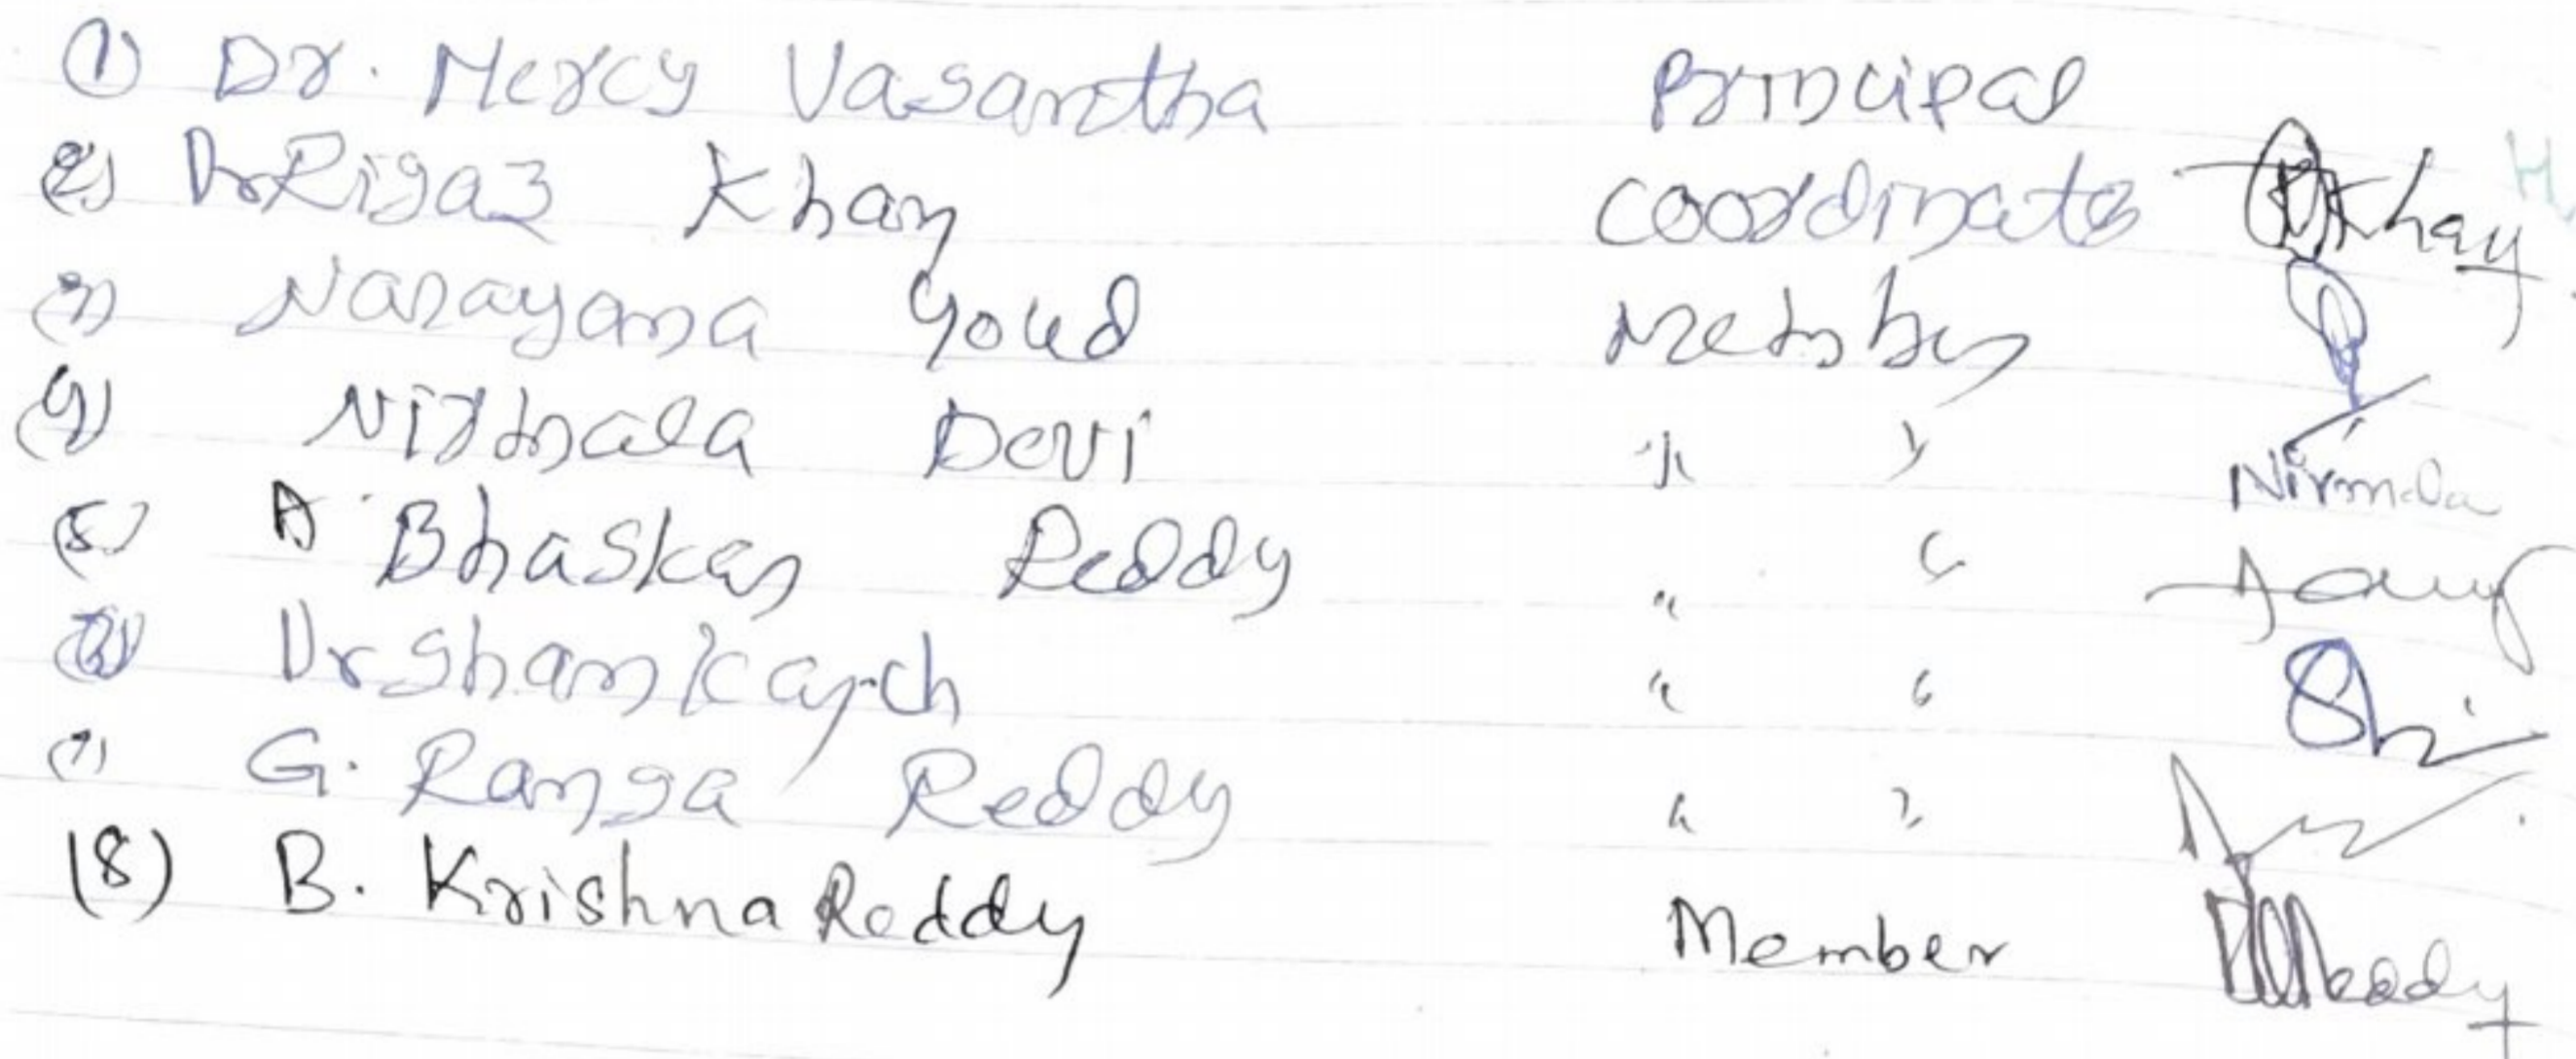 (1) Dr. Mercy Vasantha Principal
(2) Dr Riyaz Khan Coordinator
(3) Narayana Goud Member
(4) Nirmala Devi " " Nirmala
(5) A Bhaskar Reddy " "
(6) Dr Shankar ch " "
(7) G. Ranga Reddy " "
(8) B. Krishna Reddy Member